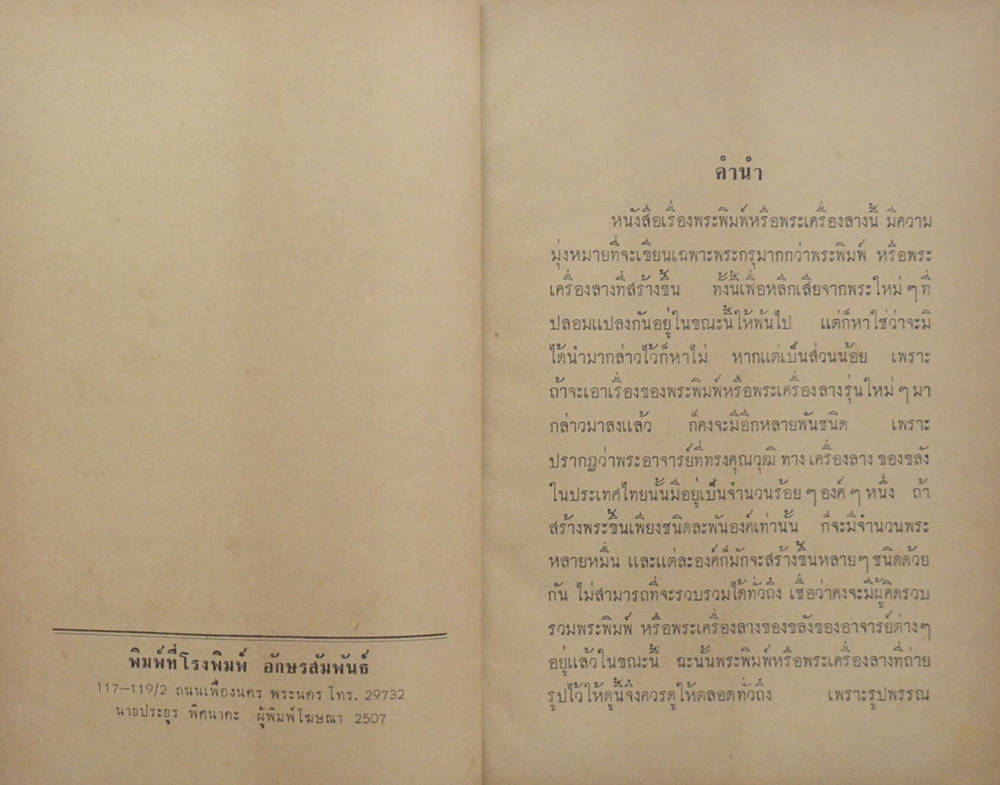 พิมพ์ที่โรงพิมพ์ อักษรสัมพันธ์
117-119/2 ถนนเฟื่องนคร พระนคร โทร. 29732
นายประยูร พิศนาคะ ผู้พิมพ์โฆษณา 2507
คำนำ
หนังสือเรื่องพระพิมพ์หรือพระเครื่องลางนี้ มีความ
มุ่งหมายที่จะเขียนเฉพาะพระกรุมากกว่าพระพิมพ์ หรือพระ
เครื่องลางที่สร้างขึ้น ทั้งนี้เพื่อหลีกเสียจากพระใหม่ ๆ ที่
ปลอมแปลงกันอยู่ในขณะนี้ให้พ้นไป แต่ก็หาใช่ว่าจะมิ
ได้นำมากล่าวไว้ก็หาไม่ หากแต่เป็นส่วนน้อย เพราะ
ถ้าจะเอาเรื่องของพระพิมพ์หรือพระเครื่องลางรุ่นใหม่ ๆ มา
กล่าวมาลงแล้ว ก็คงจะมีอีกหลายพันชนิด เพราะ
ปรากฏว่าพระอาจารย์ที่ทรงคุณวุฒิ ทาง เครื่องลาง ของขลัง
ในประเทศไทยนั้นมีอยู่เป็นจำนวนร้อย ๆ องค์ ๆ หนึ่ง ถ้า
สร้างพระขึ้นเพียงชนิดละพันองค์เท่านั้น ก็จะมีจำนวนพระ
หลายหมื่น และแต่ละองค์ก็มักจะสร้างขึ้นหลาย ๆ ชนิดด้วย
กัน ไม่สามารถที่จะรวบรวมได้ทั่วถึง เชื่อว่าคงจะมีผู้คิดรวบ
รวมพระพิมพ์ หรือพระเครื่องลางของขลังของอาจารย์ต่างๆ
อยู่แล้วในขณะนี้ ฉะนั้นพระพิมพ์หรือพระเครื่องลางที่ถ่าย
รูปไว้ให้ดูนี้จึงควรดูให้ตลอดทั่วถึง เพราะรูปพรรณ